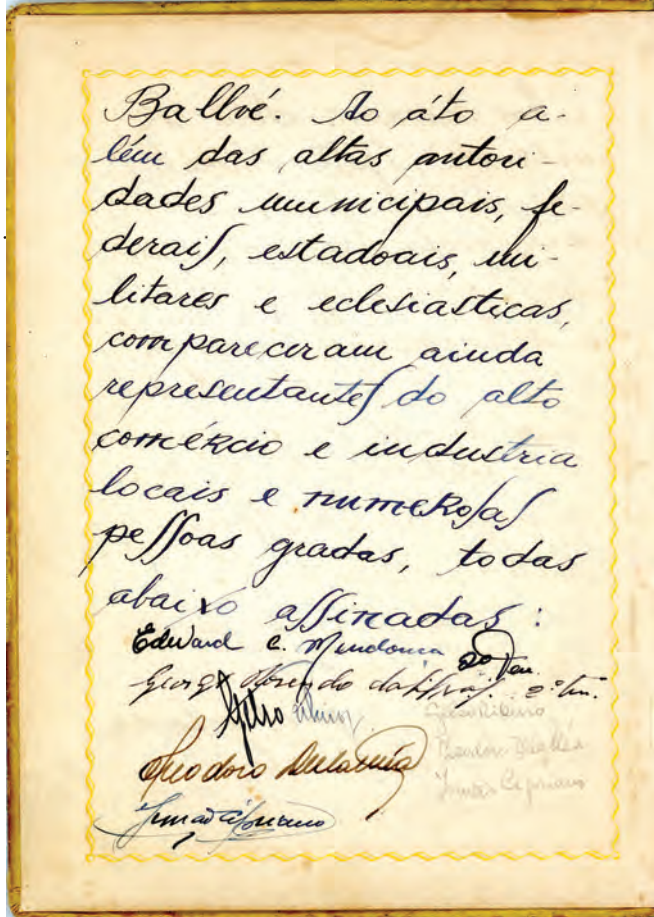 Ballvé. Ao áto a-
lém das altas autori-
dades municipais, fe-
derais, estadoais, mi-
litares e eclesiasticas,
compareceram ainda
representantes do alto
comércio e industria
locais e numerosas
pessoas gradas, todas
abaixo assinadas:
Edward C. Mendonca 2º Ten.
George da Silva 2º Ten.
Ribeiro
Theodoro
Cipriano